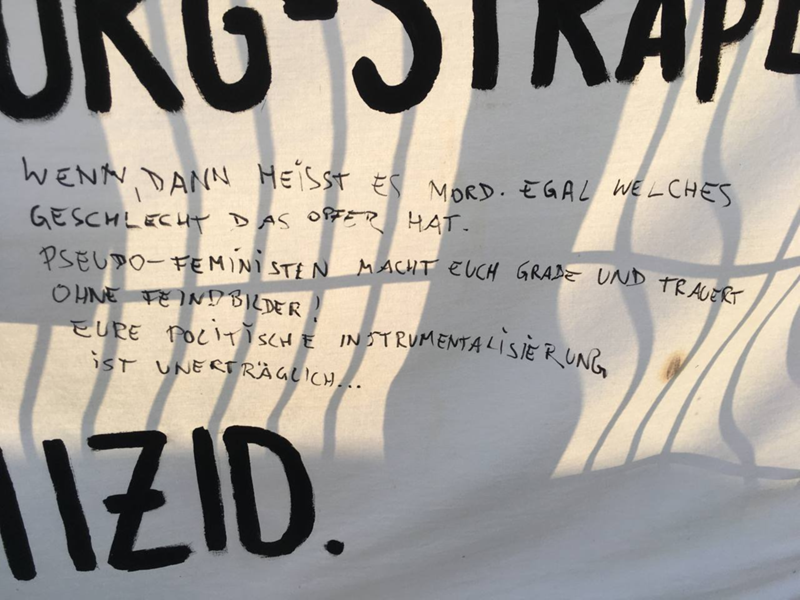 URG-STRAPE
WENN, DANN HEISST ES MORD. EGAL WELCHES
GESCHLECHT DAS OPFER HAT.
PSEUDO-FEMINISTEN MACHT EUCH GRADE UND TRAUERT
OHNE FEINDBILDER!
EURE POLITISCHE INSTRUMENTALISIERUNG
IST UNERTRÄGLICH...
IZID.